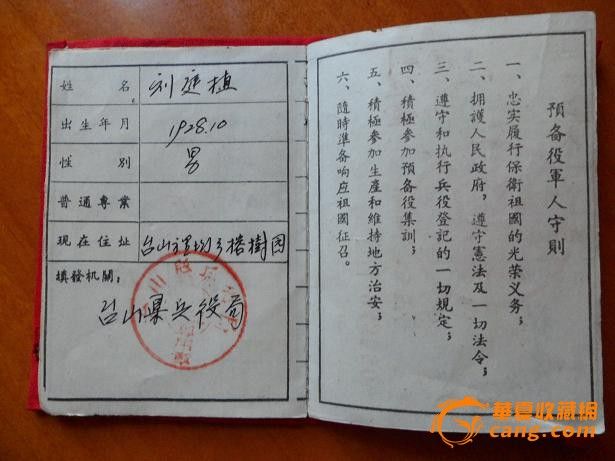 姓名 刘
出生年月 1928.10
性別 男
普通專業
現在住址 台山 樹园
填發机關:
台山縣兵役局
預备役軍人守則
一、忠实履行保衛祖國的光荣义务;
二、拥護人民政府,遵守憲法及一切法令;
三、遵守和执行兵役登記的一切規定;
四、積極参加預备役集訓;
五、積極参加生產和維持地方治安;
六、隨時準备响应祖國征召。
華夏收藏網
cang.com